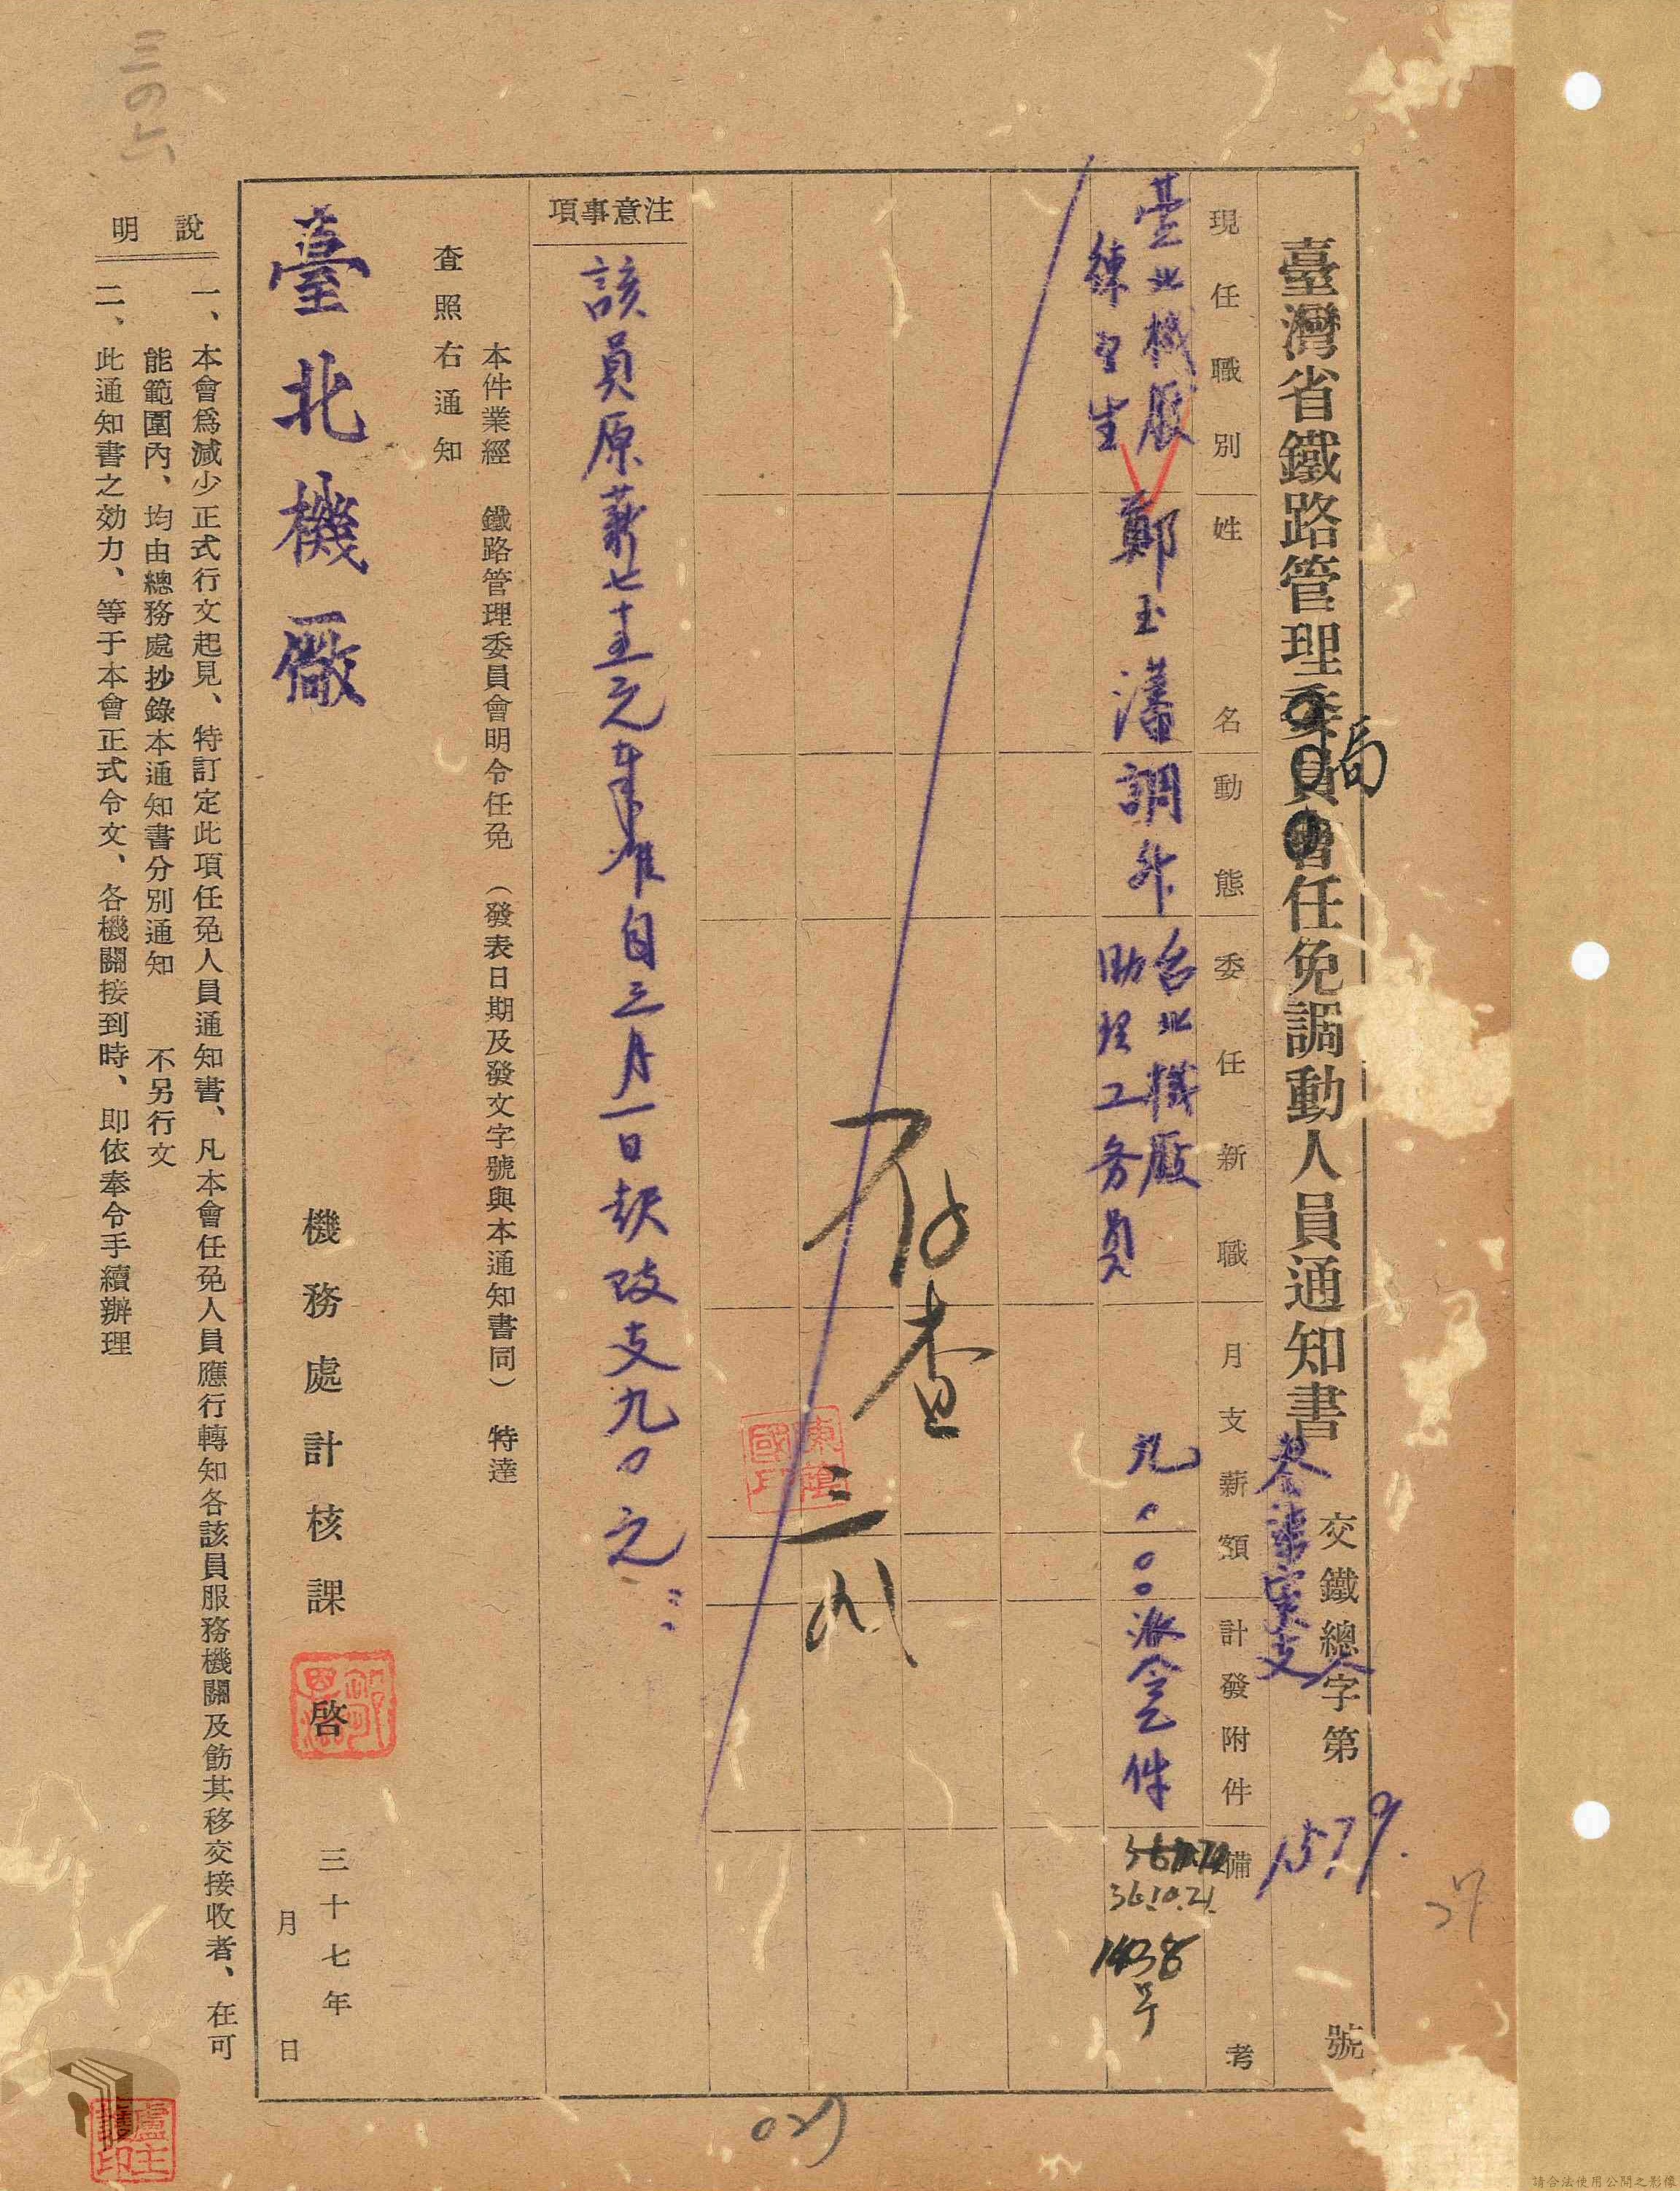 臺灣省鐵路管理委員會任免調動人員通知書
局
交鐵總字第1579.號
人
現任職別
姓名
動態
委任新職
月支薪額
計發附件
備考
臺北機廠
練習生
鄭玉藩
調升
台北機廠
助理工務員
九〇.〇〇
派令乙件
36.10.21.
1438
号
存查
三
注意事項
該員原薪七十五元奉准自三月一日起改支九〇元
本件業經 鐵路管理委員會明令任免 (發表日期及發文字號與本通知書同) 特達
查照右通知
臺北機廠
機務處計核課 啓
三十七年
月 日
說明
一、本會爲減少正式行文起見、特訂定此項任免人員通知書、凡本會任免人員應行轉知各該員服務機關及飭其移交接收者、在可
能範圍內、均由總務處抄錄本通知書分別通知 不另行文
二、此通知書之効力、等于本會正式令文、各機關接到時、即依奉令手續辦理
請合法使用公開之影像